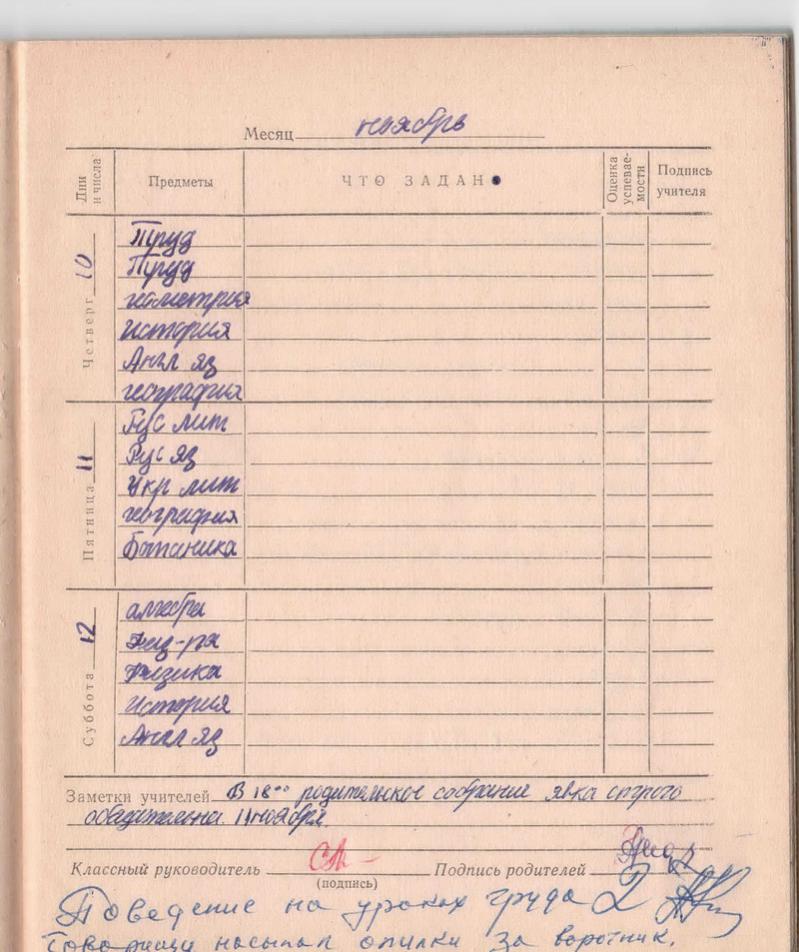 Месяц ноябрь
Дни и числа Предметы ЧТО ЗАДАНО Оценка успевае-мости Подпись учителя
Четверг 10
Труд
Труд
геометрия
История
Англ яз
география
Пятница 11
Рус лит
Рус яз
Укр лит
география
Ботаника
Суббота 12
алгебра
Физ-ра
Физика
История
Англ яз
Заметки учителей В 18⁰⁰ родительское собрание явка строго
обязательна. 11 ноября.
Классный руководитель Подпись родителей
(подпись)
Поведение на уроках труда 2
Товарищу насыпал опилки за воротник.